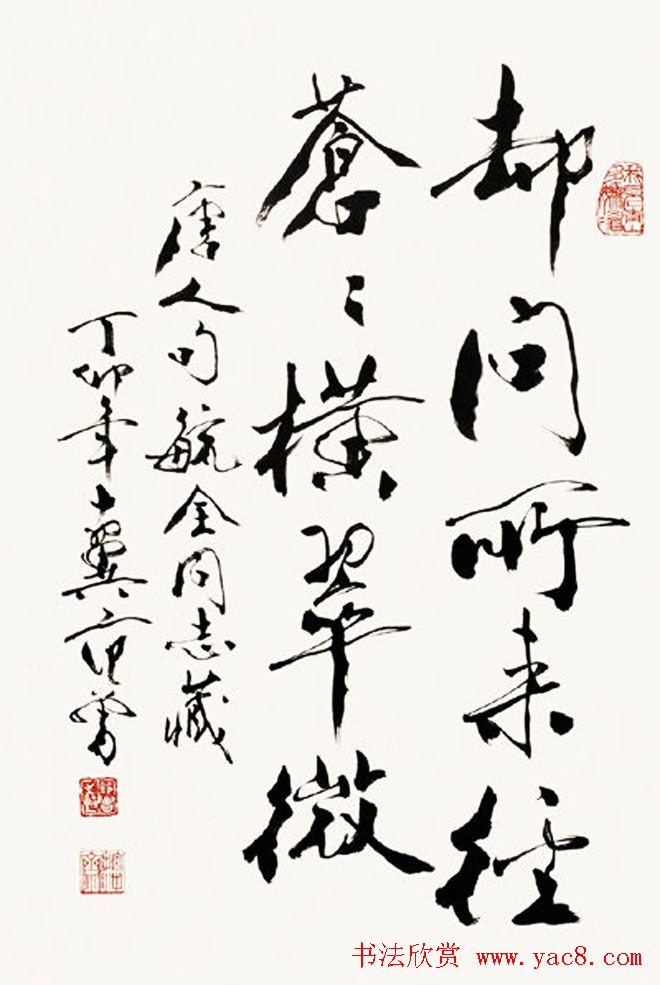 却问所来径
蒼〻横翠微
唐人句毓全同志藏
丁卯年十翼范曾
书法欣赏 www.yac8.com